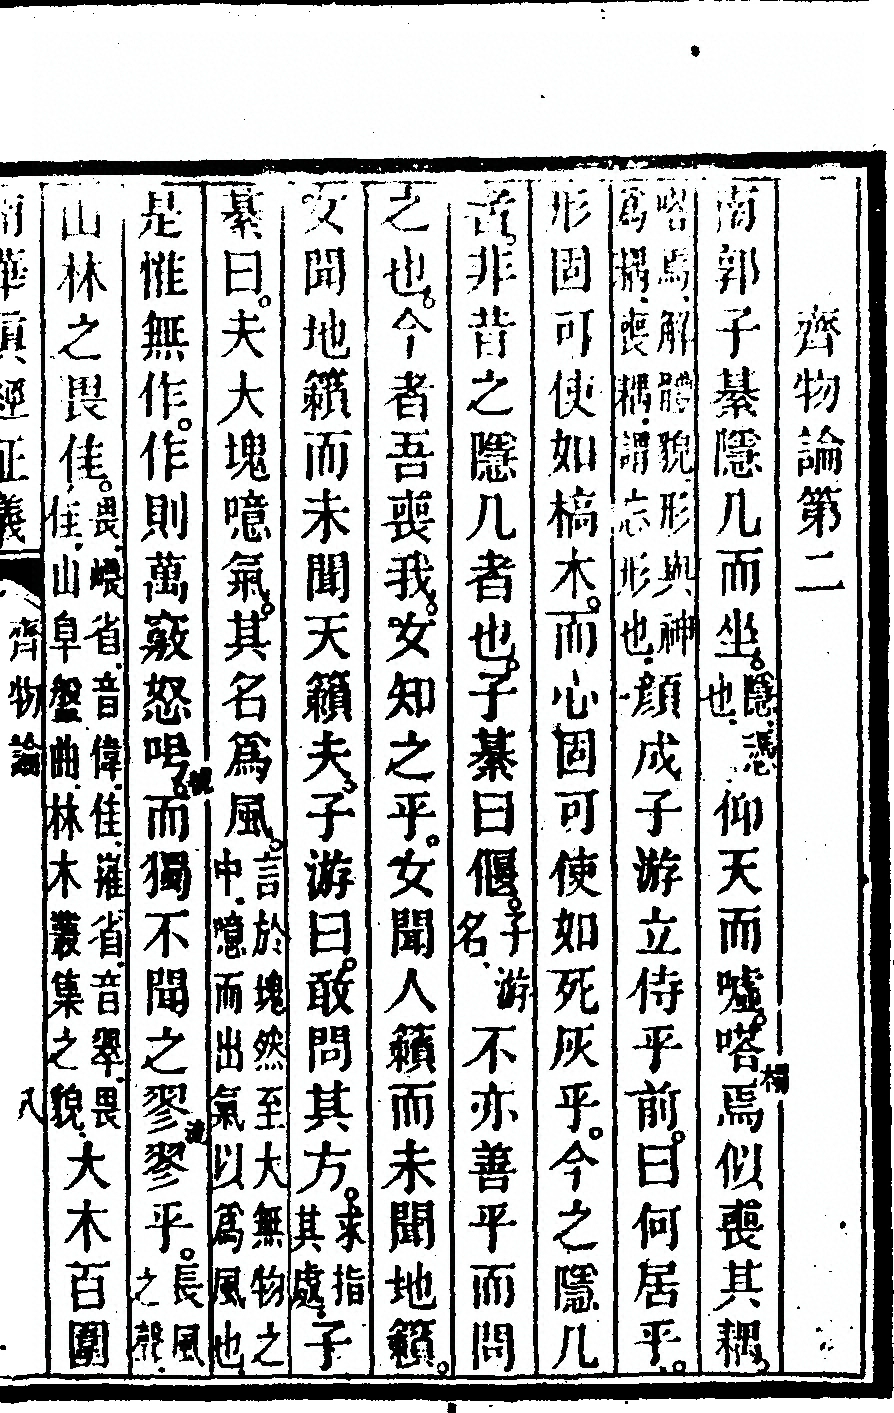 齊物論第二
南郭子綦隱几而坐。隱、憑也、仰天而噓。嗒榻焉似喪其耦、
嗒焉、解體貌、形與神爲耦、喪耦、謂忘形也、顏成子游立侍乎前。曰何居乎。
形固可使如槁木。而心固可使如死灰乎。今之隱几
者。非昔之隱几者也。子綦曰偃。子游名、不亦善乎而問
之也。今者吾喪我。女知之乎。女聞人籟而未聞地籟。
女聞地籟而未聞天籟夫、子游曰。敢問其方。求指其處、子
綦曰。夫大塊噫氣。其名爲風。言於塊然至大無物之中、噫而出氣以爲風也、
是惟無作。作則萬竅怒呺號。而獨不聞之翏翏乎。長風之聲、
山林之畏佳。畏、嵔省、音偉、佳、嶉省、音翠、畏佳、山阜盤曲、林木叢集之貌、大木百圍
南華眞經正義 齊物論 八